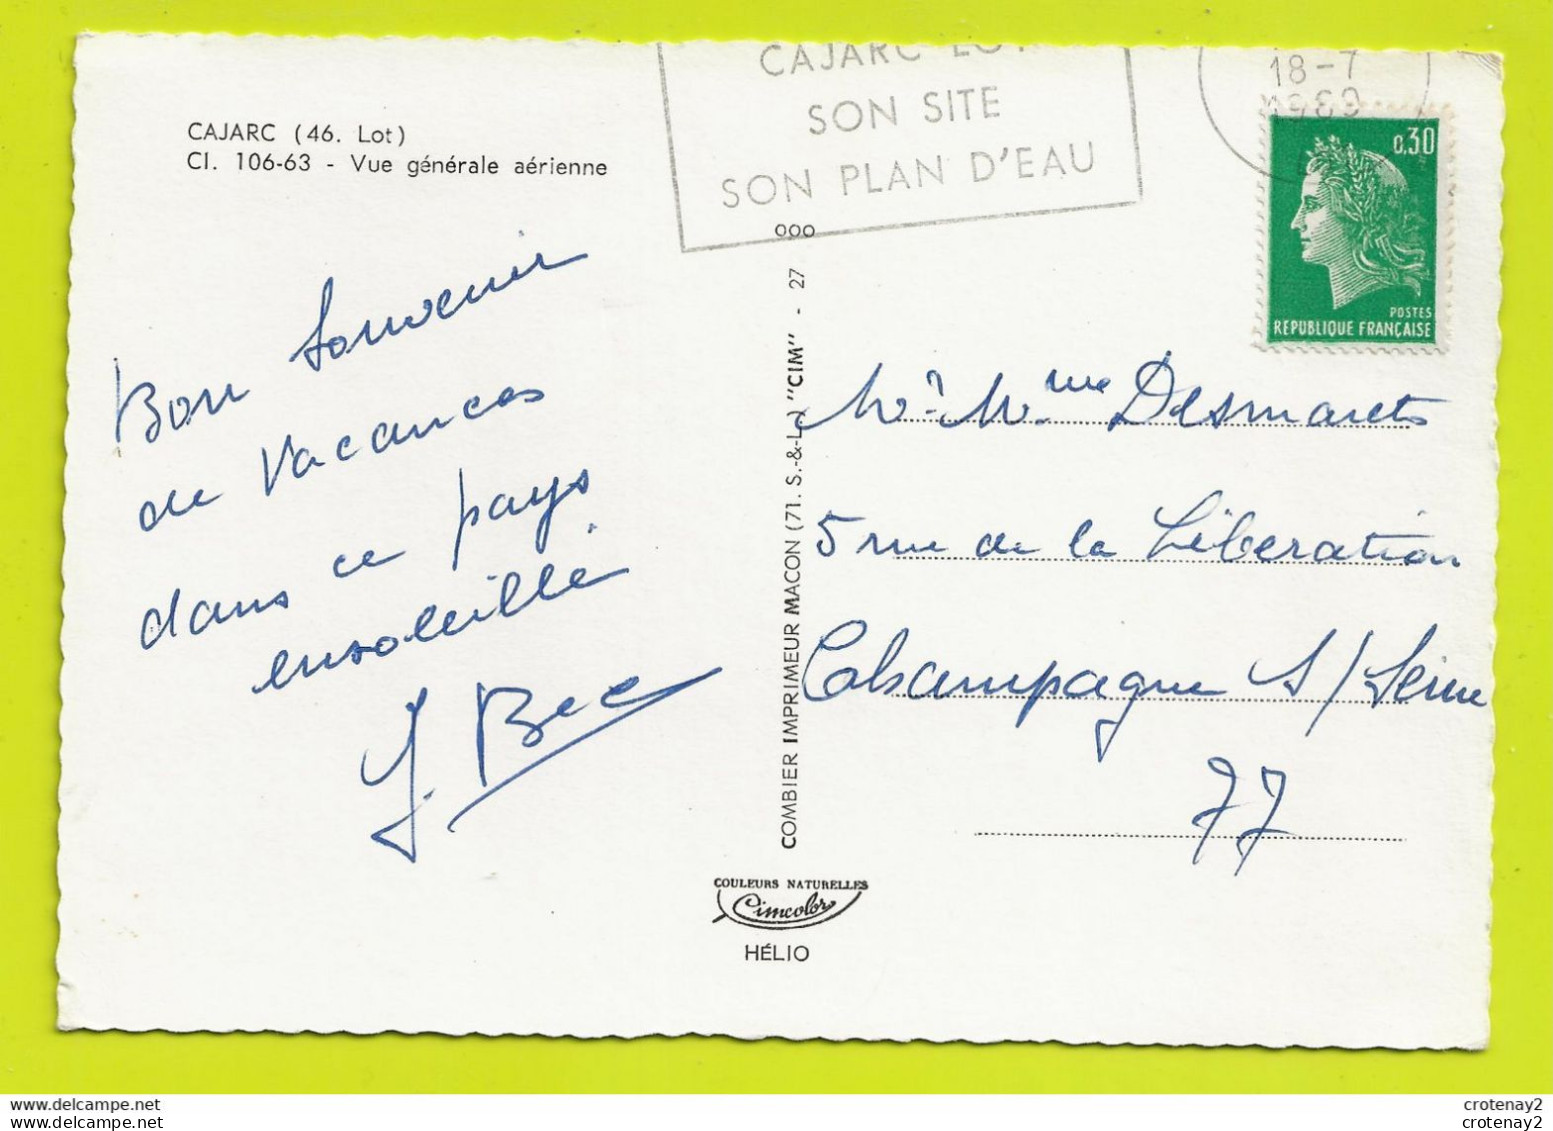 CAJARC LOT
SON SITE
SON PLAN D'EAU
18-7
1969
0,30
POSTES
REPUBLIQUE FRANÇAISE
CAJARC (46. Lot)
Cl. 106-63 - Vue générale aérienne
Bon souvenir
de vacances
dans ce pays
ensoleillé
J. Bec
COMBIER IMPRIMEUR MACON (71. S.-&-L.) "CIM" - 27
ooo
COULEURS NATURELLES
Cimcolor
HÉLIO
Mr Mme Desmarets
5 rue de la Libération
Champagne S/Seine
77
www.delcampe.net
crotenay2
crotenay2